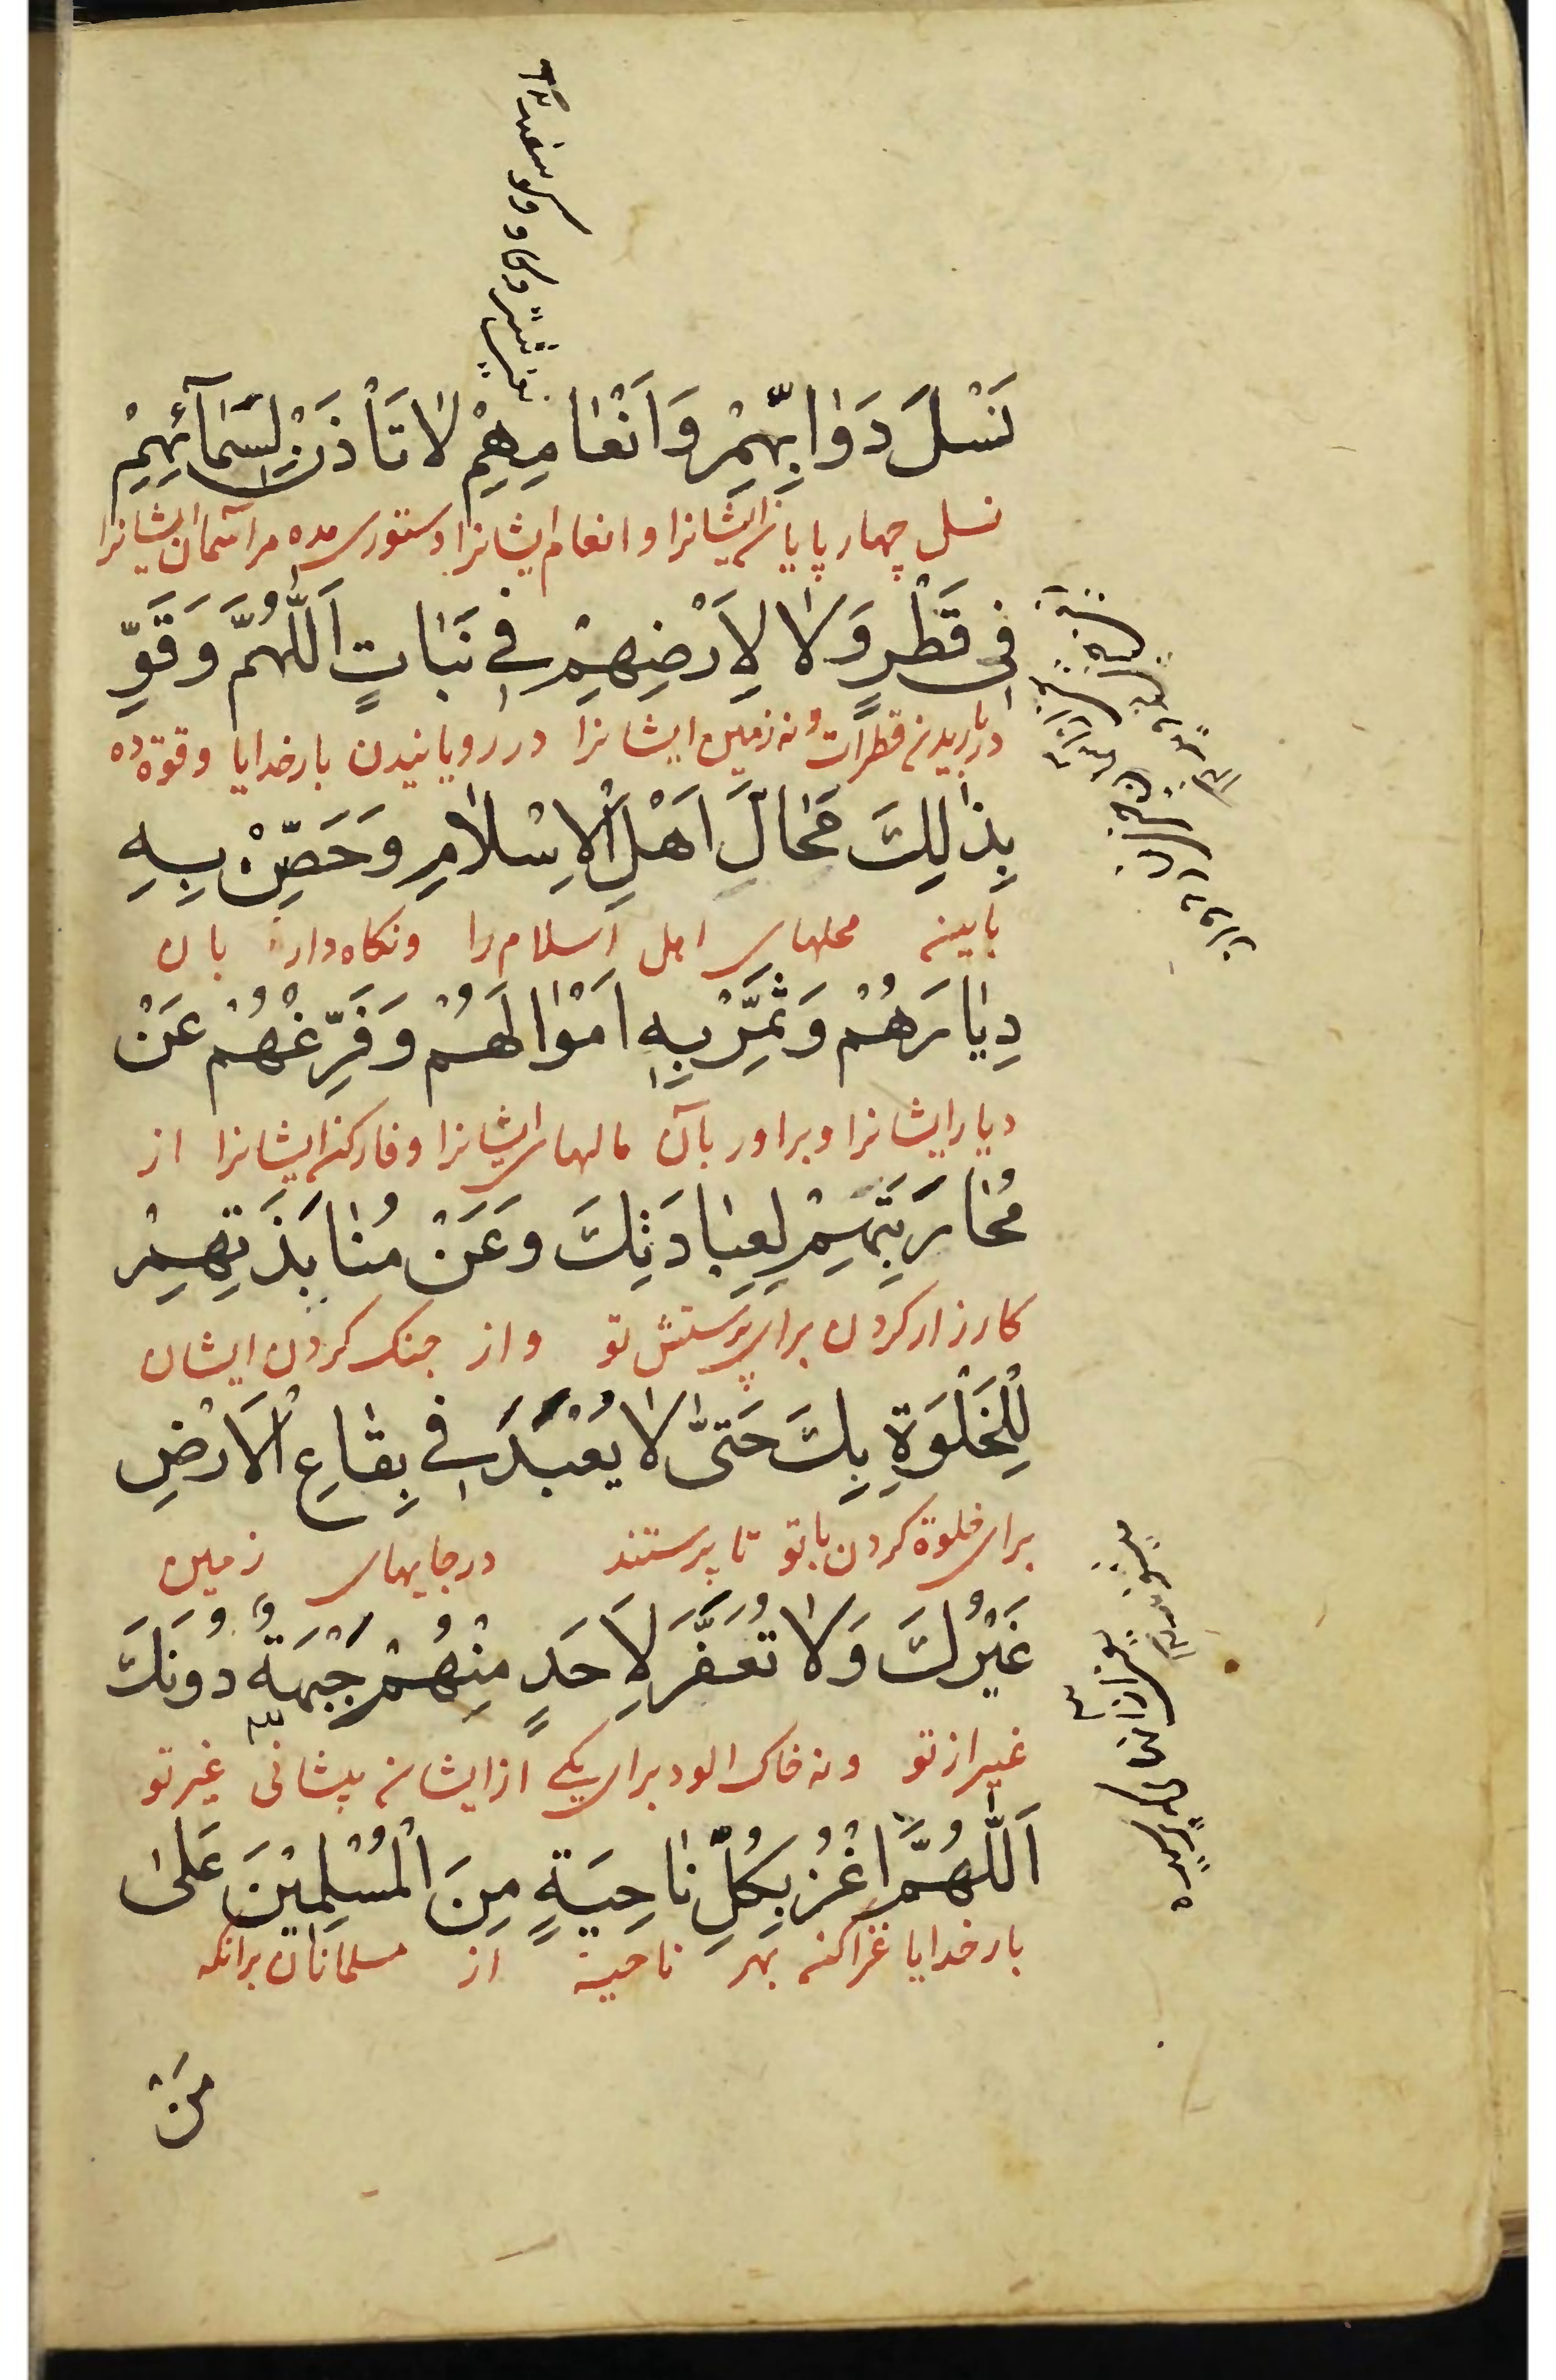 نَسْلَ دَوَابِّهِمْ وَاَنْعَامِهِمْ لَا تَأْذَنْ لِسَمَآئِهِمْ
نسل چهار پایان ایشانرا و انعام ایشانرا دستوری مده مر آسمان ایشانرا
فِي قَطْرٍ وَلَا لِاَرْضِهِمْ فِي نَبَاتٍ اَللّٰهُمَّ وَقَوِّ
در باریدن قطرات و نه زمین ایشانرا در رویانیدن بار خدایا و قوة ده
بِذٰلِكَ مَحَالَّ اَهْلِ الْاِسْلَامِ وَحَصِّنْ بِهِ
باین محلهای اهل اسلام را و نکاه دار بان
دِيَارَهُمْ وَثَمِّرْ بِهِ اَمْوَالَهُمْ وَفَرِّغْهُمْ عَنْ
دیار ایشانرا و براور بآن مالهای ایشانرا و فارکن ایشانرا از
مُحَارَبَتِهِمْ لِعِبَادَتِكَ وَعَنْ مُنَابَذَتِهِمْ
کارزار کردن برای پرستش تو و از جنک کردن ایشان
لِلْخَلْوَةِ بِكَ حَتّٰى لَا يُعْبَدَ فِي بِقَاعِ الْاَرْضِ
برای خلوة کردن با تو تا پرستند در جایهای زمین
غَيْرُكَ وَلَا تُعَفَّرَ لِاَحَدٍ مِنْهُمْ جَبْهَةٌ دُونَكَ
غیر از تو و نه خاک الود برای یکی از ایشان پیشانی غیر تو
اَللّٰهُمَّ اغْزُ بِكُلِّ نَاحِيَةٍ مِنَ الْمُسْلِمِيْنَ عَلٰى
بار خدایا غزا کن بهر ناحیة از مسلمانان برانکه
مَنْ